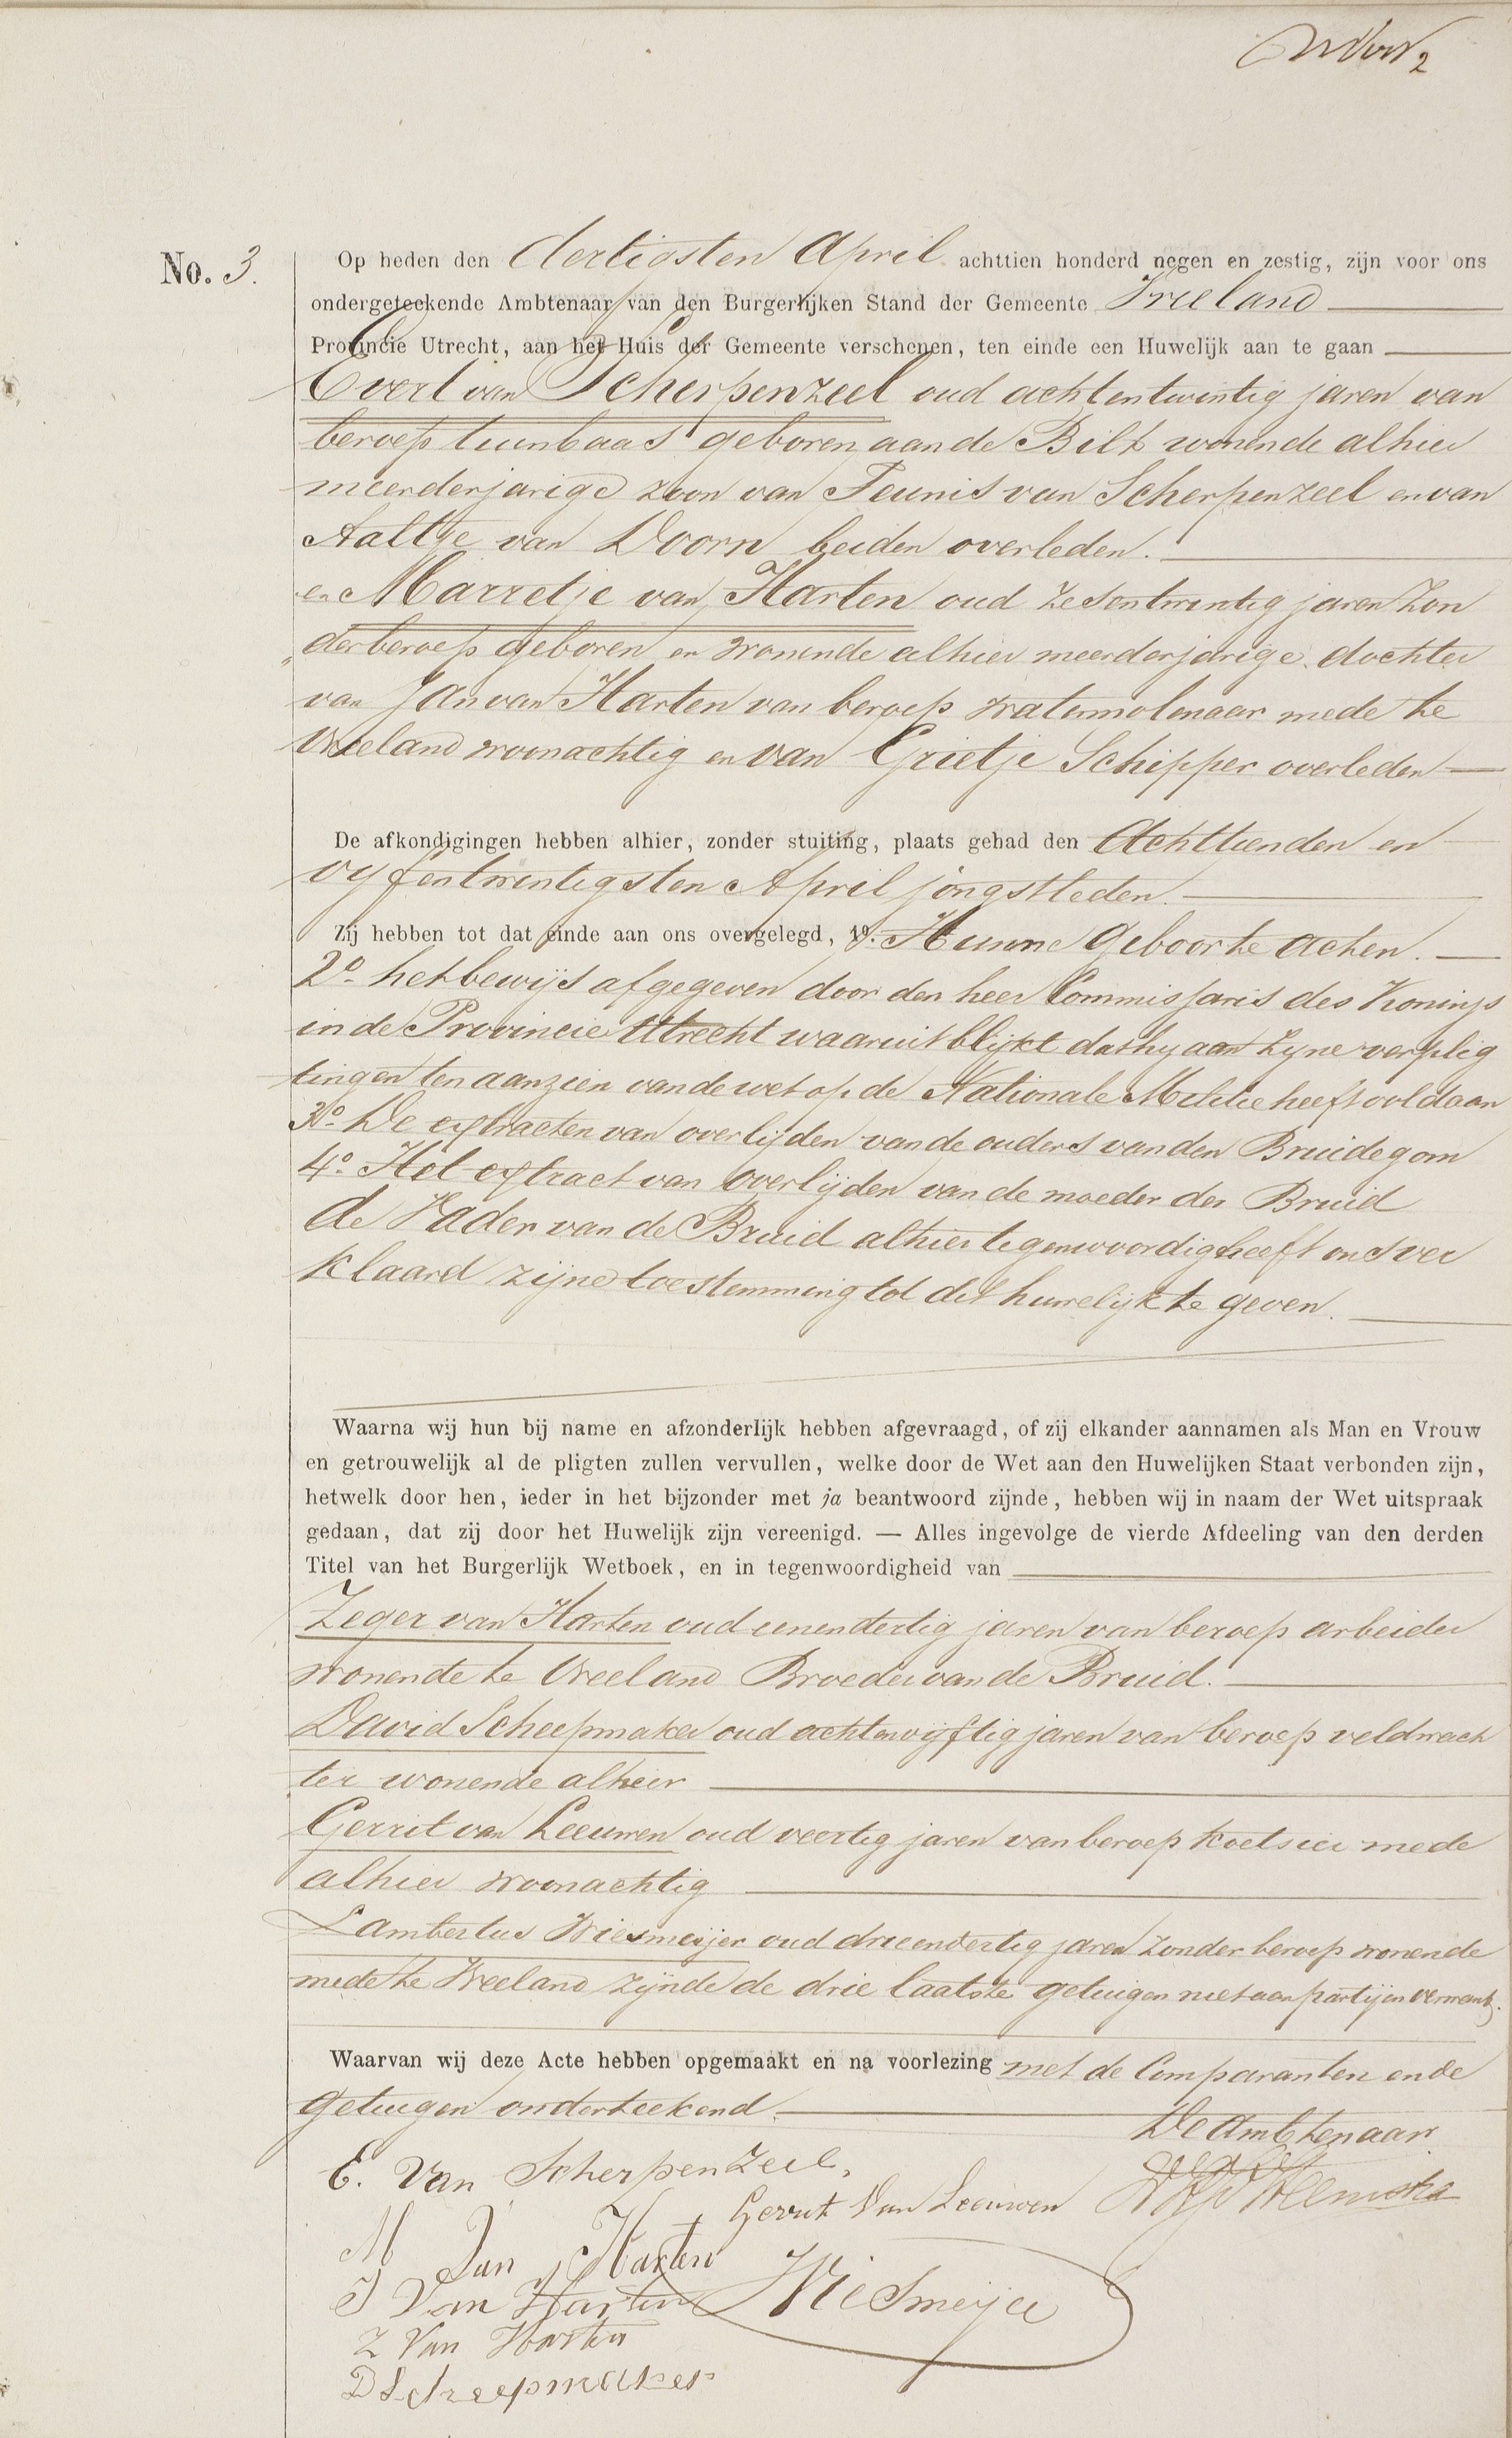 No. 3.
Op heden den dertigsten April achttien honderd negen en zestig, zijn voor ons
ondergeteekende Ambtenaar van den Burgerlijken Stand der Gemeente Vreeland
Provincie Utrecht, aan het Huis der Gemeente verschenen, ten einde een Huwelijk aan te gaan
Evert van Scherpenzeel oud achtentwintig jaren van
beroep tuinbaas geboren aan de Bilt wonende alhier
meerderjarige zoon van Teunis van Scherpenzeel en van
Aaltje van Doorn beiden overleden.
en Marretje van Harten oud zesentwintig jaren zon
der beroep geboren en wonende alhier meerderjarige dochter
van Jan van Harten van beroep watermolenaar mede te
Vreeland woonachtig en van Grietje Schipper overleden
De afkondigingen hebben alhier, zonder stuiting, plaats gehad den Achttienden en
vyfentwintigsten April jongstleden.
Zij hebben tot dat einde aan ons overgelegd, 1o. Hunne geboorte acten.
2o. het bewijs afgegeven door den heer Commissaris des Konings
in de Provincie Utrecht waaruit blijkt dat hy aan zyne verplig
tingen ten aanzien van de wet op de Nationale Militie heeft voldaan
3o. De extracten van overlijden van de ouders van den Bruidegom
4o. Het extract van overlijden van de moeder der Bruid
de Vader van de Bruid alhier tegenwoordig heeft ons ver
klaard zijne toestemming tot dit huwelijk te geven.
Waarna wij hun bij name en afzonderlijk hebben afgevraagd, of zij elkander aannamen als Man en Vrouw
en getrouwelijk al de pligten zullen vervullen, welke door de Wet aan den Huwelijken Staat verbonden zijn,
hetwelk door hen, ieder in het bijzonder met ja beantwoord zijnde, hebben wij in naam der Wet uitspraak
gedaan, dat zij door het Huwelijk zijn vereenigd. — Alles ingevolge de vierde Afdeeling van den derden
Titel van het Burgerlijk Wetboek, en in tegenwoordigheid van
Zeger van Harten oud eenendertig jaren van beroep arbeider
wonende te Vreeland Broeder van de Bruid.
David Scheepmaker oud achtenvijftig jaren van beroep veldwach
ter wonende alhier
Gerrit van Leeuwen oud veertig jaren van beroep koetsier mede
alhier woonachtig
Lambertus Wiesmeijer oud drieendertig jaren zonder beroep wonende
mede te Vreeland zijnde de drie laatste getuigen niet aan partijen verwant.
Waarvan wij deze Acte hebben opgemaakt en na voorlezing met de Comparanten en de
getuigen onderteekend.
De Ambtenaar.
E. Van Scherpenzeel,
Gerrit Van Leeuwen
M Van Harten
J Van Harten
Wiesmeijer
Z Van Harten
D Scheepmaker